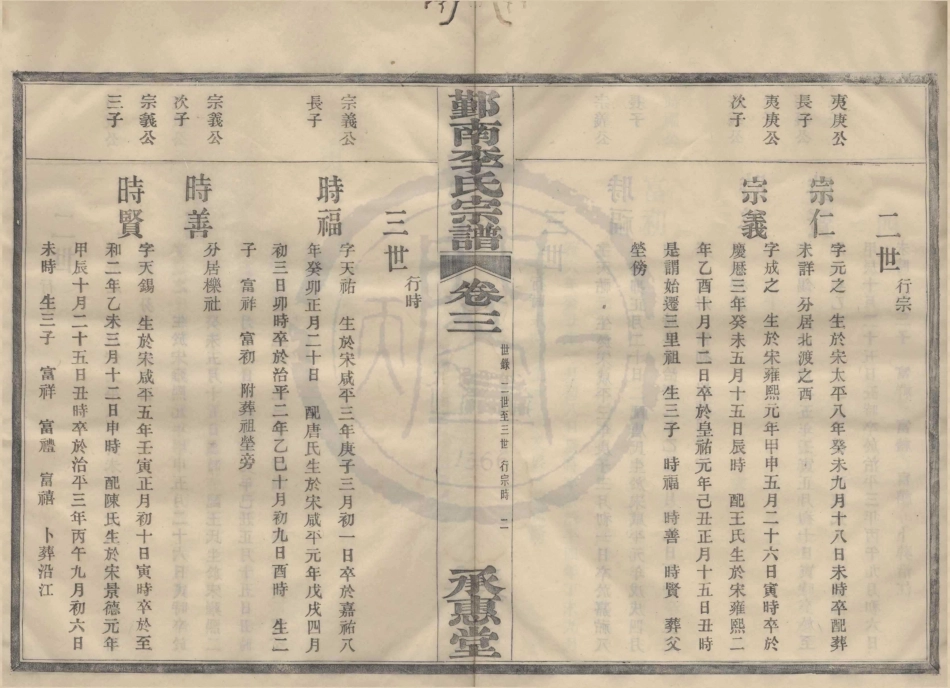 二世
行宗
夷庚公
長子
宗仁
字元之 生於宋太平八年癸未九月十八日未時卒配葬
未詳 分居北渡之西
夷庚公
次子
宗義
字成之 生於宋雍熙元年甲申五月二十六日寅時卒於
慶曆三年癸未五月十五日辰時 配王氏生於宋雍熙二
年乙酉十月十二日卒於皇祐元年己丑正月十五日丑時
是謂始遷三里祖 生三子 時福 時善 時賢 葬父
塋傍
鄞南李氏宗譜
卷三
世錄 二世至三世 行宗時 二
承恩堂
三世
行時
宗義公
長子
時福
字天祐 生於宋咸平三年庚子三月初一日卒於嘉祐八
年癸卯正月二十日 配唐氏生於宋咸平元年戊戌四月
初三日卯時卒於治平二年乙巳十月初九日酉時 生二
子 富祥 富初 附葬祖塋旁
宗義公
次子
時善
分居櫟社
宗義公
三子
時賢
字天錫 生於宋咸平五年壬寅正月初十日寅時卒於至
和二年乙未三月十二日申時 配陳氏生於宋景德元年
甲辰十月二十五日丑時卒於治平三年丙午九月初六日
未時 生三子 富祥 富禮 富禧 卜葬沿江